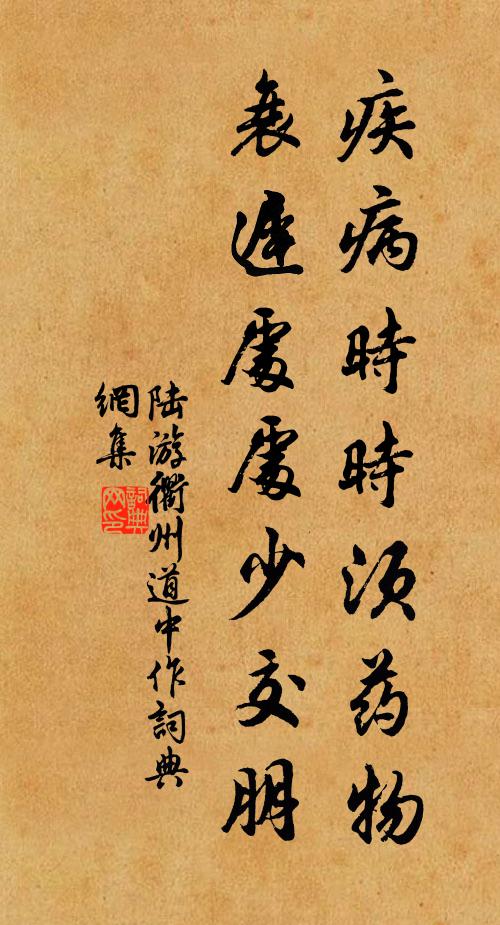 疾病時時須药物
衰遲處處少交朋
陸游衢州道中作詞典
網集
詞典網印